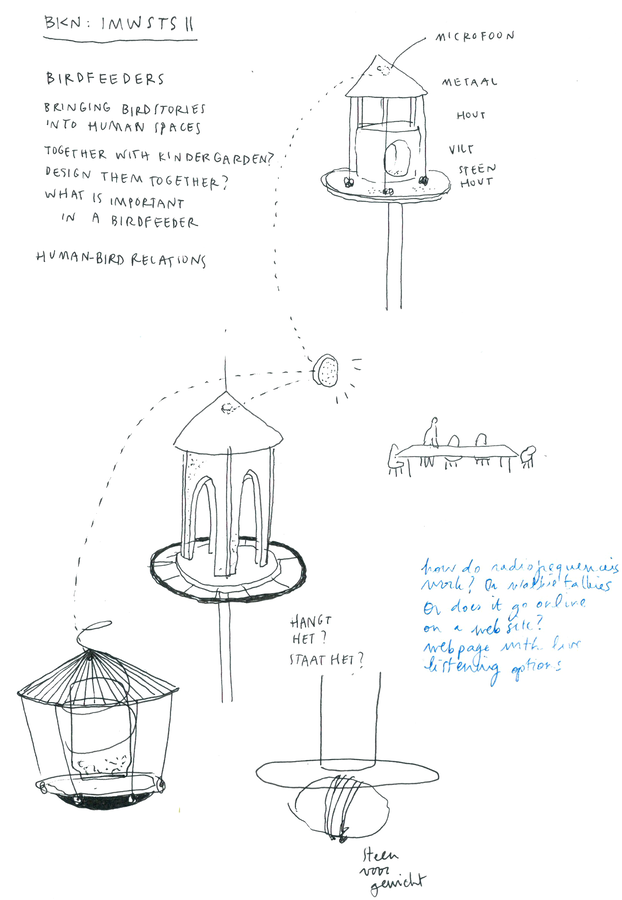 BKN: IMWSTS II
MICROFOON
METAAL
HOUT
VILT
STEEN
HOUT
BIRDFEEDERS
BRINGING BIRDSTORIES
INTO HUMAN SPACES
TOGETHER WITH KINDERGARDEN?
DESIGN THEM TOGETHER?
WHAT IS IMPORTANT
IN A BIRDFEEDER
HUMAN-BIRD RELATIONS
how do radiofrequencies
work? Or walkie talkies
Or does it go online
on a website?
webpage with live
listening options
HANGT
HET?
STAAT HET?
steen
voor
gewicht